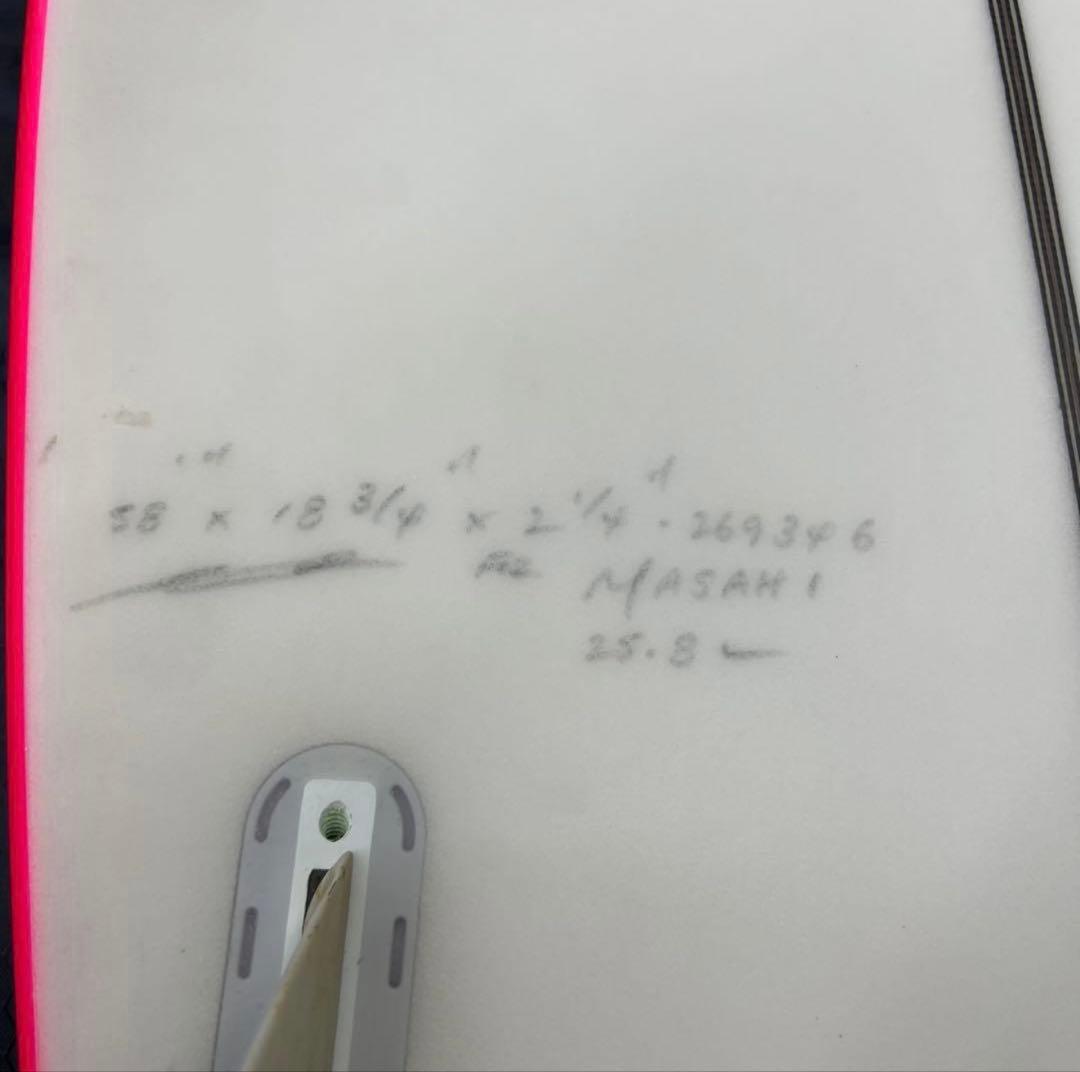 5'8" x 18 3/4" x 2 1/4" . 269346
MASAHI
25.8